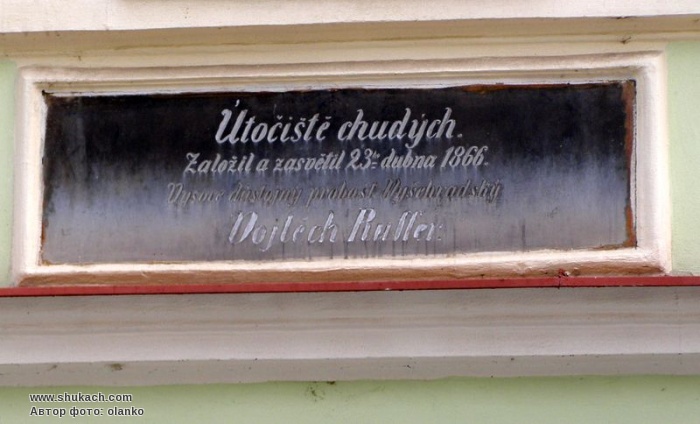 Útočiště chudých.
Založil a zasvětil 23ho dubna 1866.
důstojný probošt Vyšehradský
Vojtěch Ruffer.
www.shukach.com
Автор фото: olanko